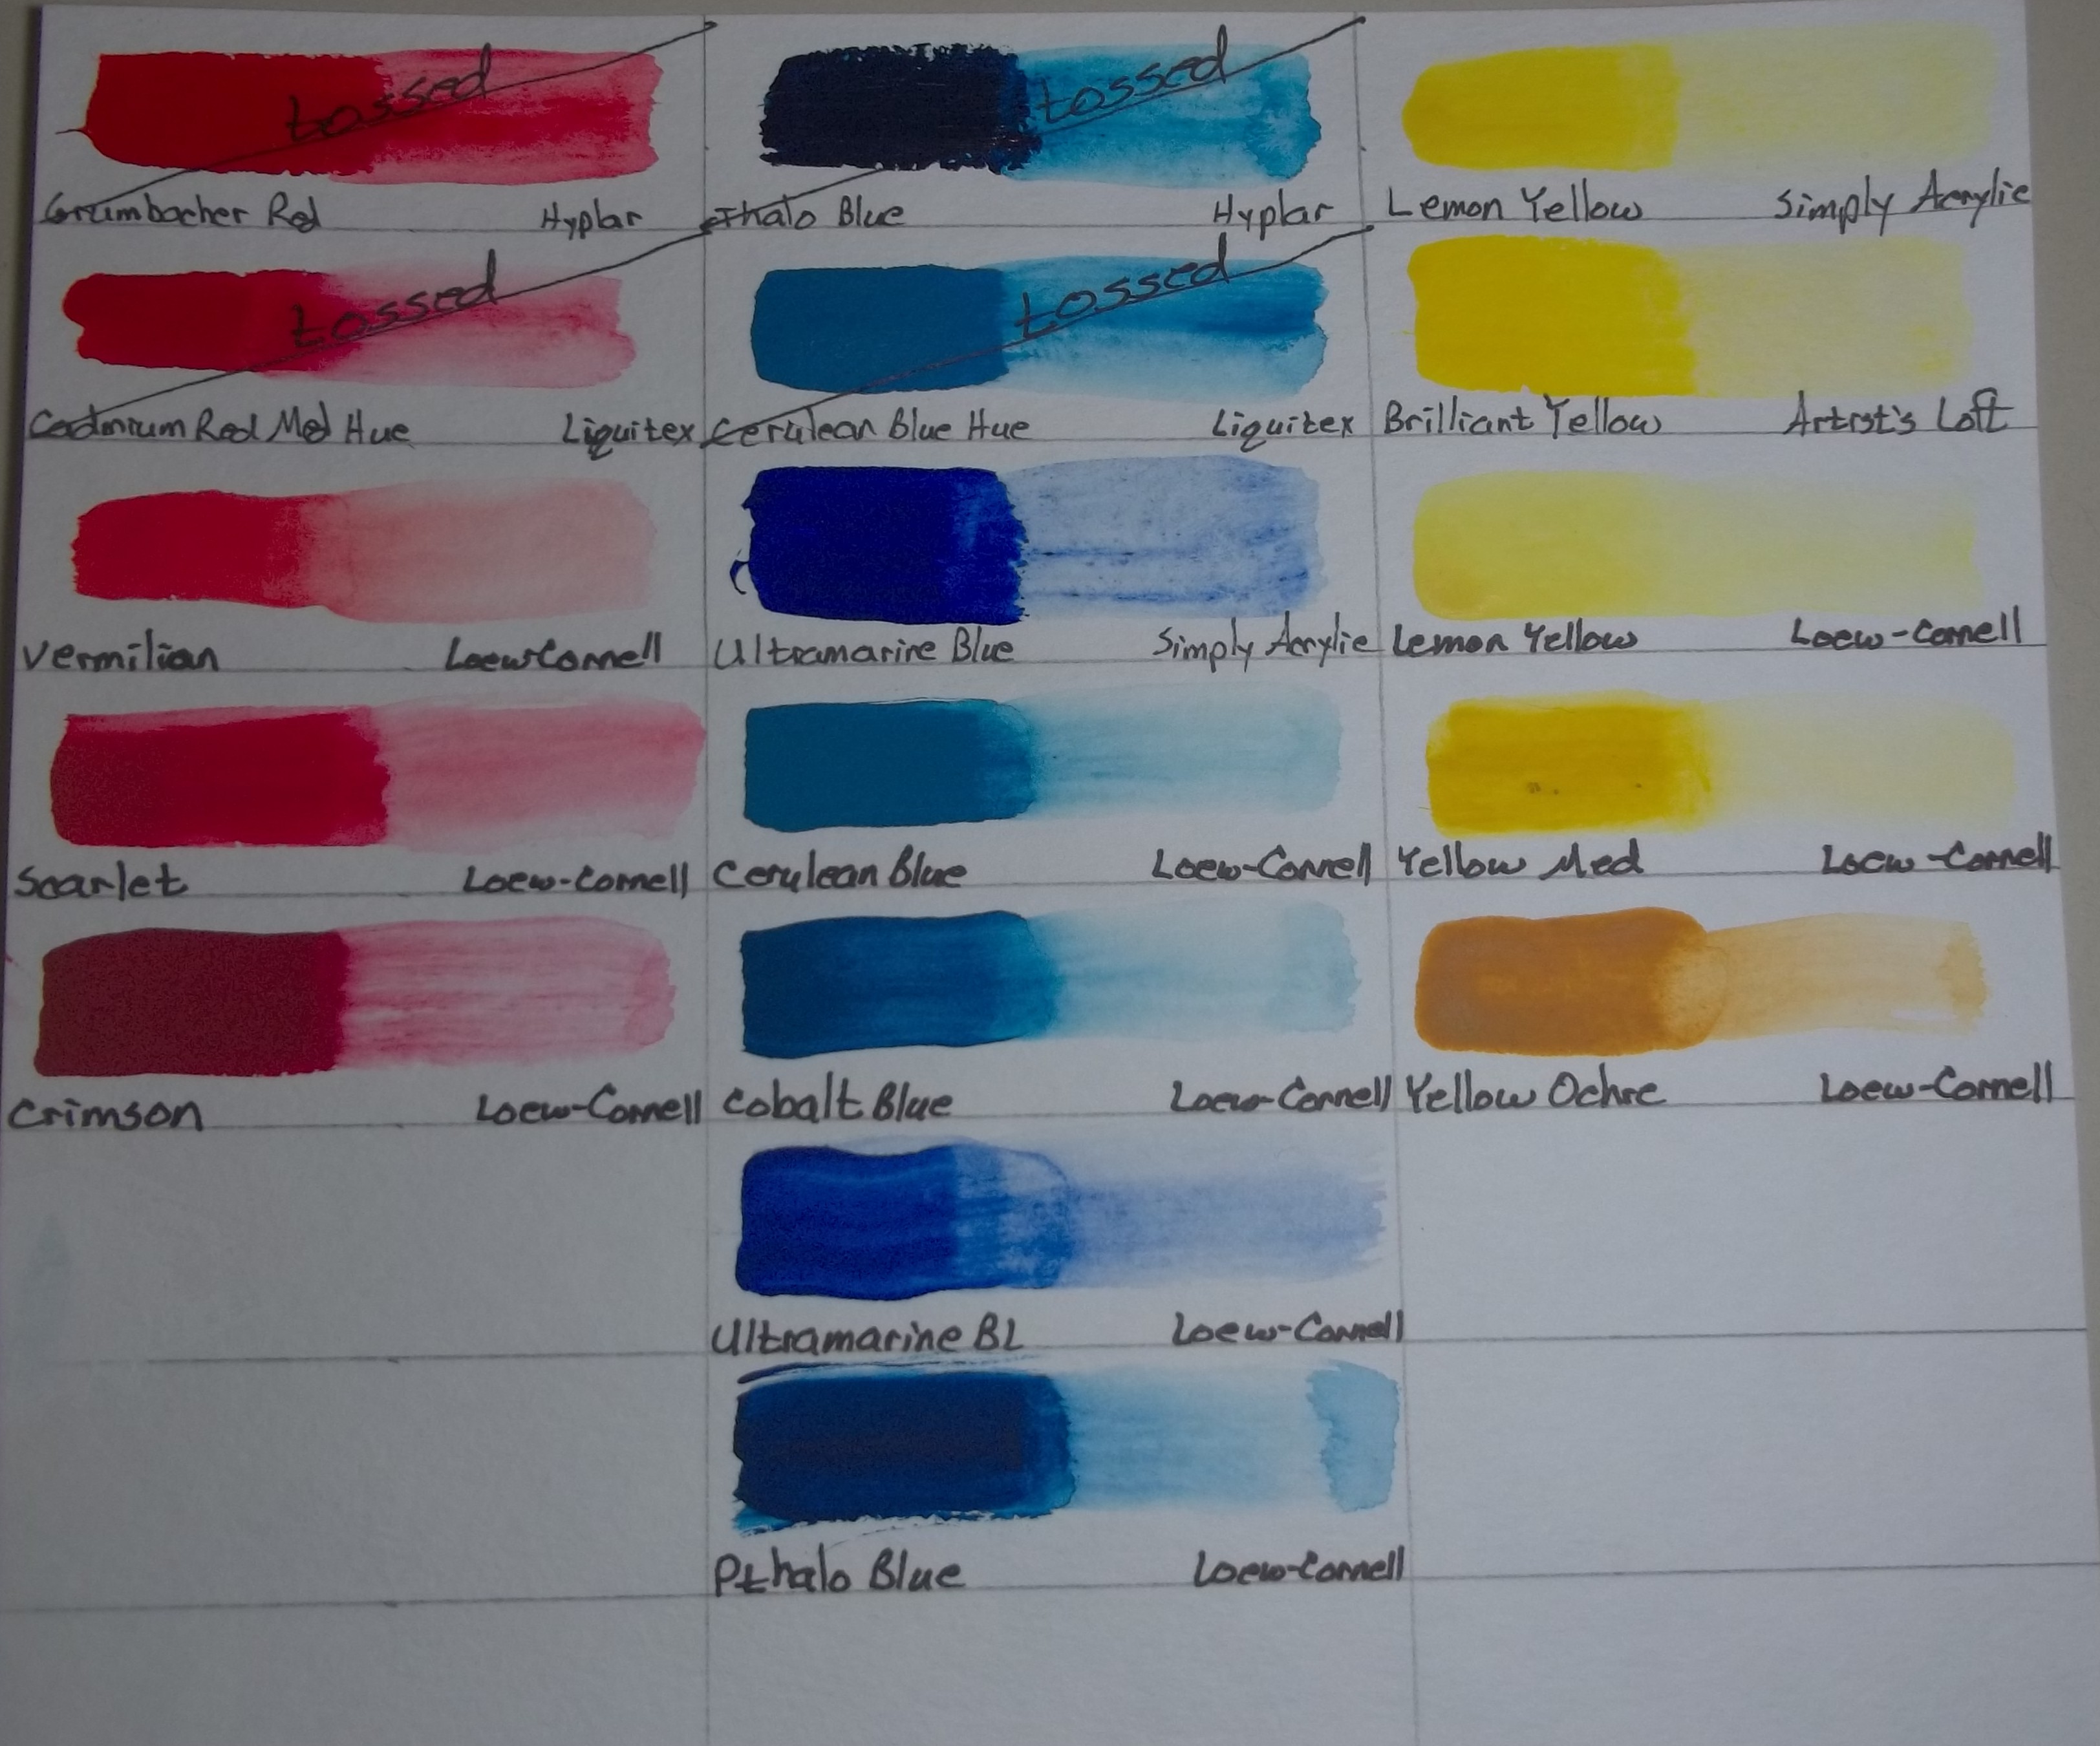 tossed
Grumbacher Red Hyplar
tossed
Pthalo Blue Hyplar
Lemon Yellow Simply Acrylic
tossed
Cadmium Red Med Hue Liquitex
tossed
Cerulean Blue Hue Liquitex
Brilliant Yellow Artist's Loft
Vermilian LoewCornell
Ultramarine Blue Simply Acrylic
Lemon Yellow Loew-Cornell
Scarlet Loew-Cornell
Cerulean Blue Loew-Cornell
Yellow Med Loew-Cornell
Crimson Loew-Cornell
Cobalt Blue Loew-Cornell
Yellow Ochre Loew-Cornell
Ultramarine BL Loew-Cornell
Pthalo Blue Loew-Cornell